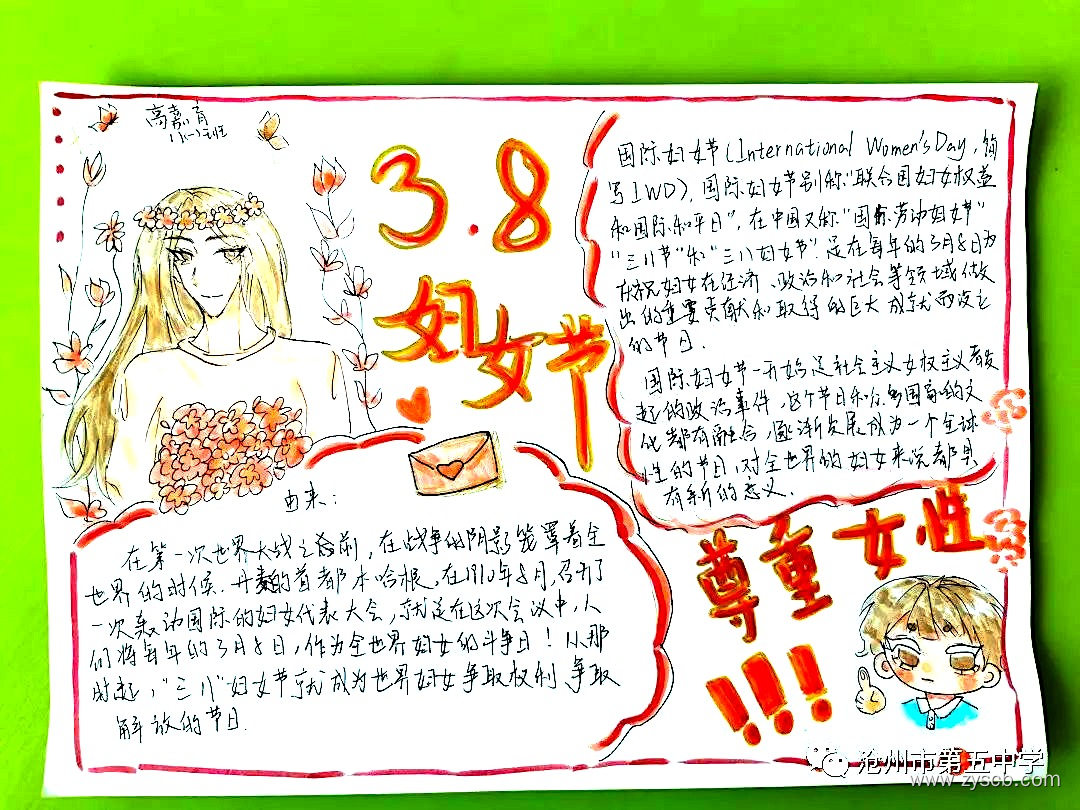 高嘉
3.8
妇女节
国际妇女节(International Women's Day,简
写IWD),国际妇女节别称"联合国妇女权益
和国际和平日",在中国又称"国际劳动妇女节"
"三八节"和"三八妇女节".是在每年的3月8日为
庆祝妇女在经济、政治和社会等领域做
出的重要贡献和取得的巨大成就而设立
的节日.
国际妇女节一开始是社会主义女权主义者发
起的政治事件,这个节日和众多国家的文
化都有融合,逐渐发展成为一个全球
性的节日,对全世界的妇女来说都具
有新的意义.
由来:
在第一次世界大战之前,在战争的阴影笼罩着全
世界的时候.丹麦的首都本哈根,在1910年8月,召开了
一次轰动国际的妇女代表大会,就是在这次会议中,人
们将每年的3月8日,作为全世界妇女的斗争日!从那
时起,"三八"妇女节就成为世界妇女争取权利争取
解放的节日.
尊重女性
!!!
沧州市第五中学
www.zyscb.com